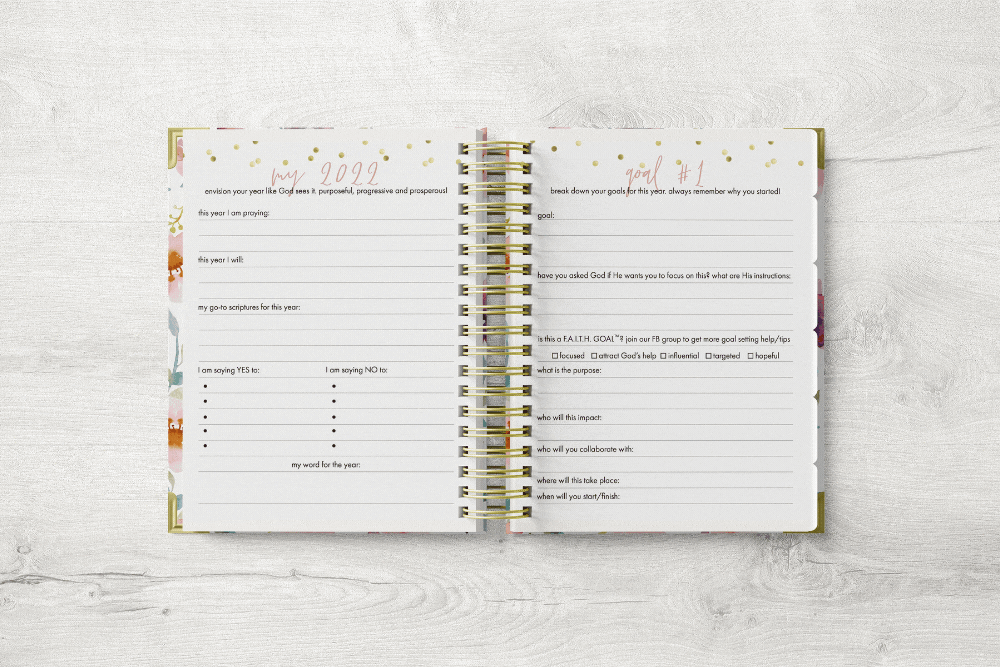 my 2022
envision your year like God sees it. purposeful, progressive and prosperous!
this year I am praying:
this year I will:
my go-to scriptures for this year:
I am saying YES to: I am saying NO to:
my word for the year:
goal #1
break down your goals for this year. always remember why you started!
goal:
have you asked God if He wants you to focus on this? what are His instructions:
is this a F.A.I.T.H. GOAL™? join our FB group to get more goal setting help/tips
focused attract God's help influential targeted hopeful
what is the purpose:
who will this impact:
who will you collaborate with:
where will this take place:
when will you start/finish: